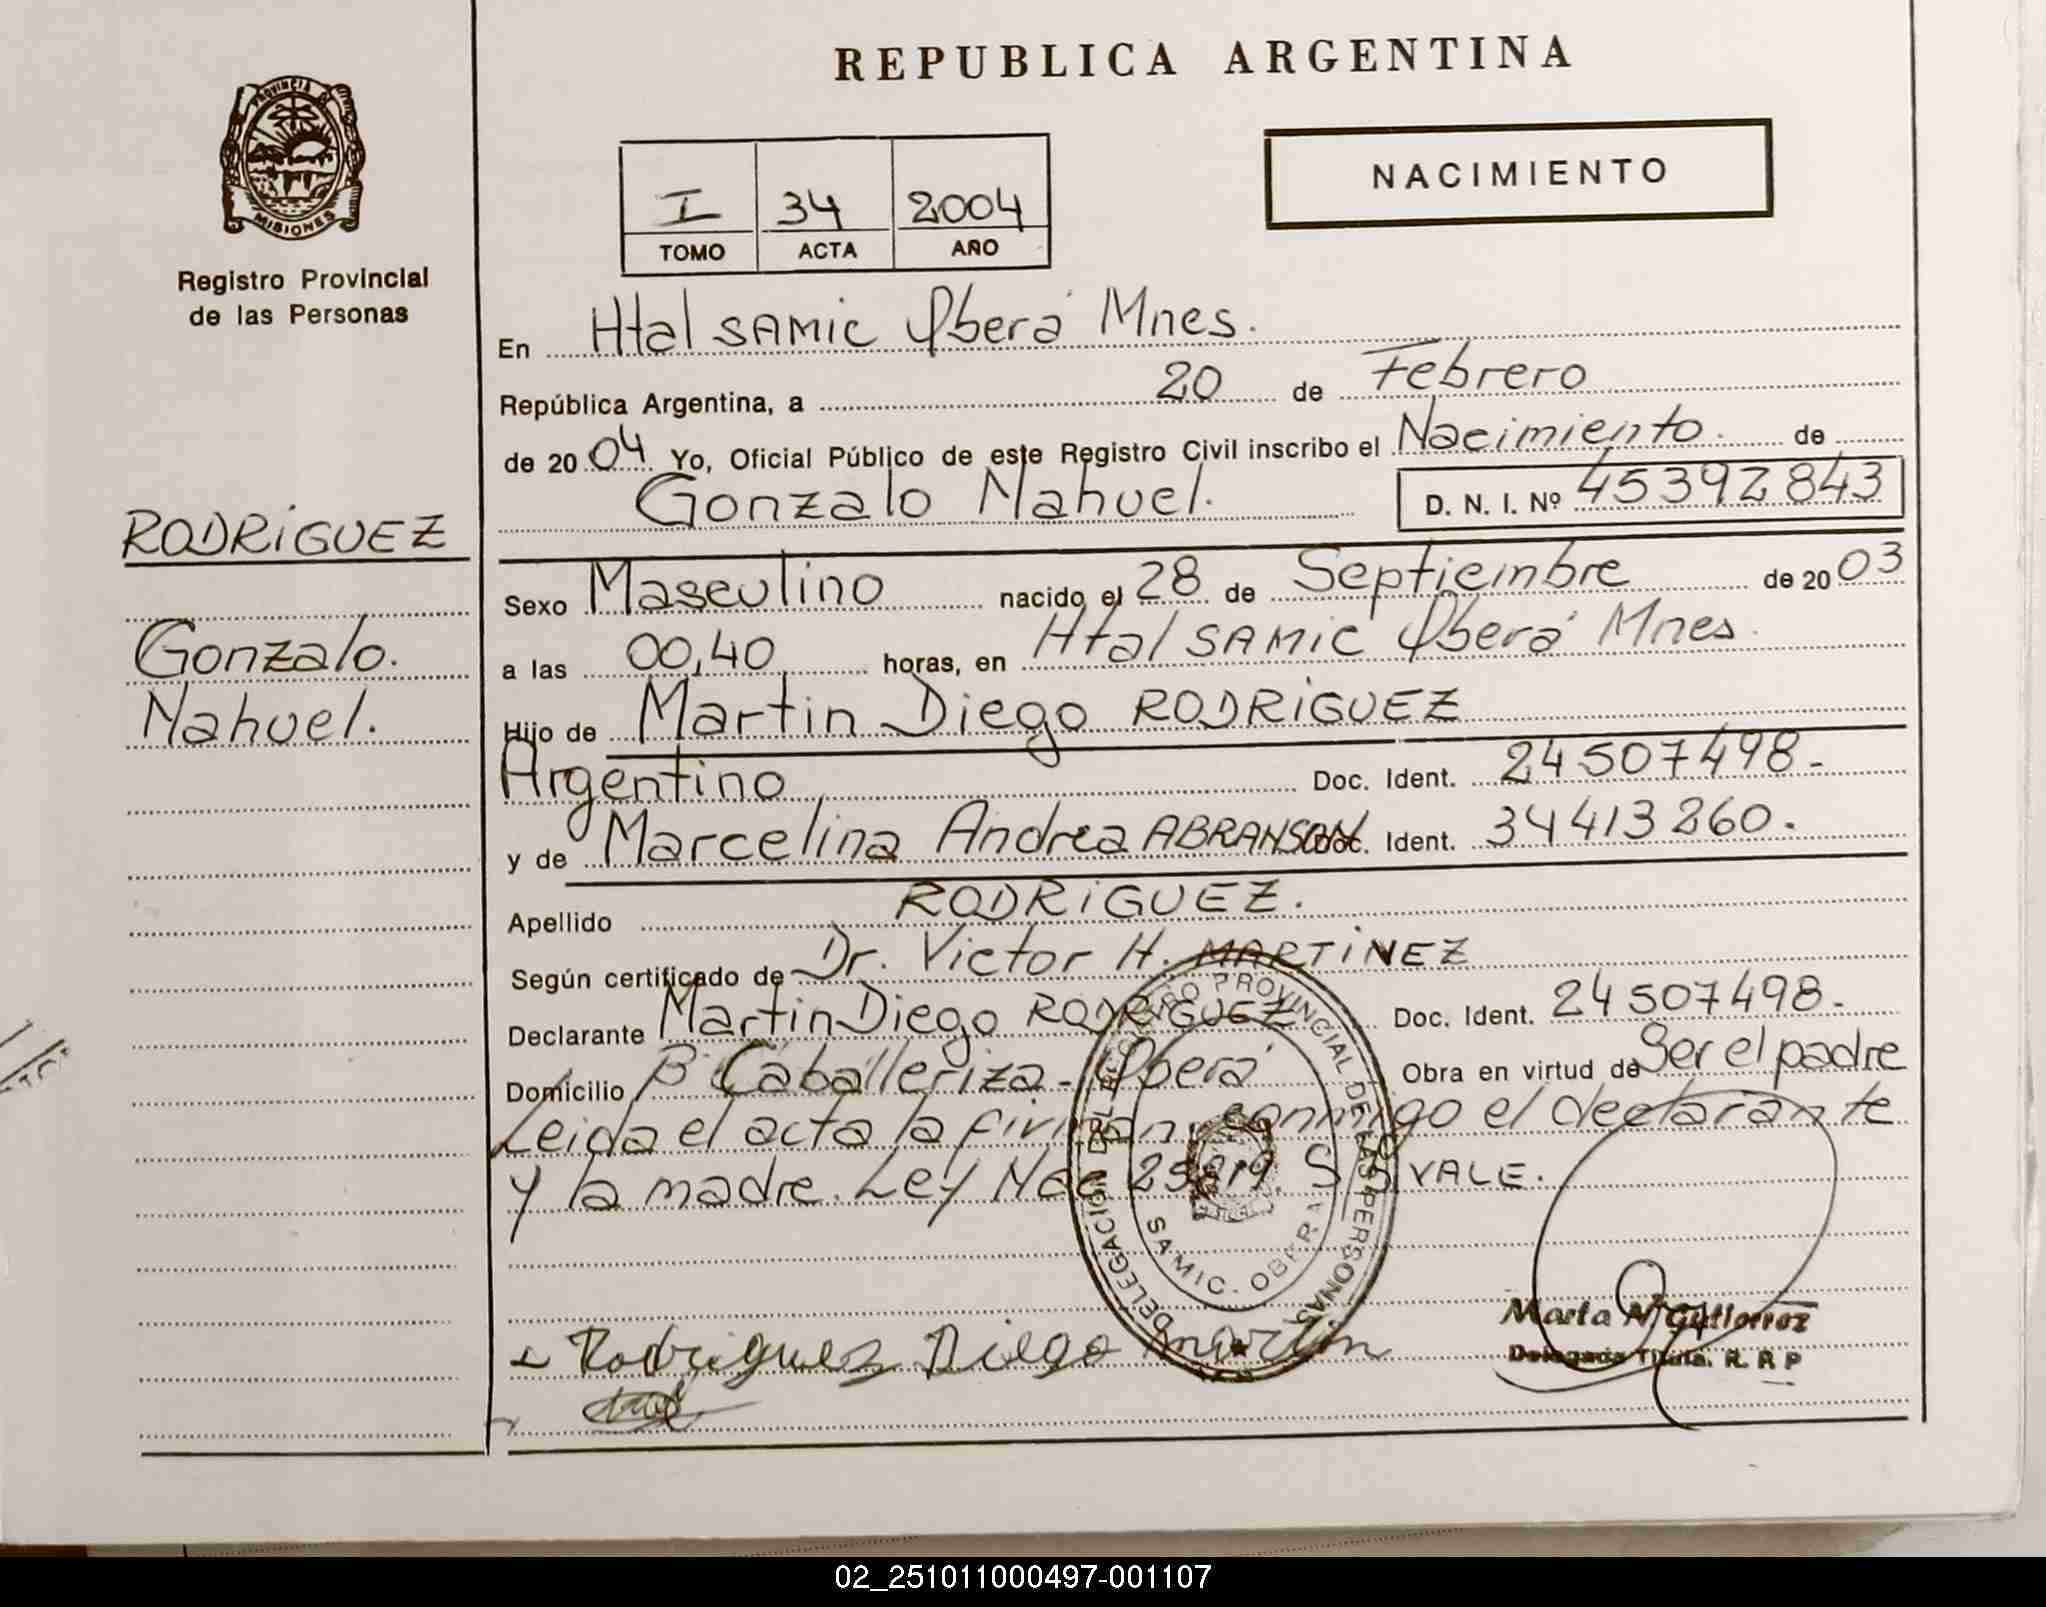 REPUBLICA ARGENTINA
PROVINCIA DE
MISIONES
Registro Provincial
de las Personas
NACIMIENTO
I 34 2004
TOMO ACTA AÑO
En Htal SAMIC Oberá Mnes.
República Argentina, a 20 de Febrero
de 2004 Yo, Oficial Público de este Registro Civil inscribo el Nacimiento. de
Gonzalo Nahuel. D. N. I. Nº 45392843
RODRIGUEZ
Gonzalo.
Nahuel.
Sexo Masculino nacido el 28 de Septiembre de 2003
a las 00,40 horas, en Htal SAMIC Oberá Mnes.
Hijo de Martin Diego RODRIGUEZ
Argentino Doc. Ident. 24507498.-
y de Marcelina Andrea ABRANSON Doc. Ident. 34413260.
Apellido RODRIGUEZ.
Según certificado de Dr. Victor H. MARTINEZ
Declarante Martin Diego RODRIGUEZ Doc. Ident. 24507498.-
Domicilio Bº Caballeriza - Oberá Obra en virtud de Ser el padre
Leida el acta la firman conmigo el declarante
y la madre. Ley Nac S/B VALE.
DELEGACION DEL REGISTRO PROVINCIAL DE LAS PERSONAS
SAMIC. OBERA
Rodriguez Diego martin
Marta N. Gutierrez
Delegada Titula. R. R P
02_251011000497-001107